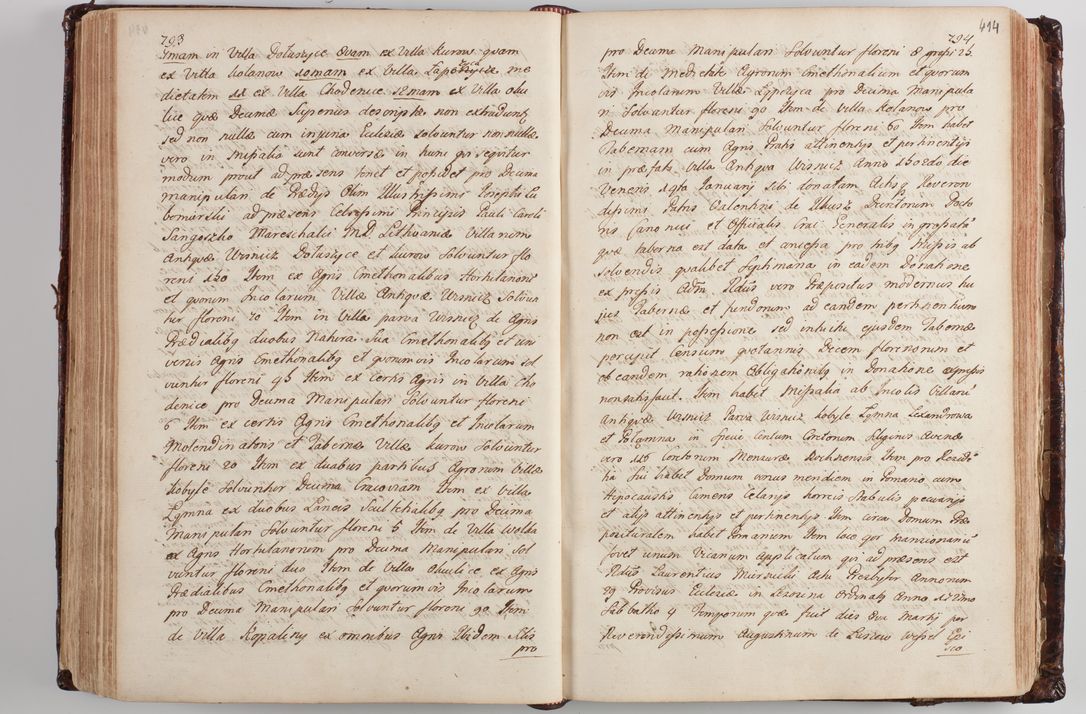 793
Imam in Villa Dołuszyce 8vam ex Villa Kurow 9vam
ex Villa Kolanow 10mam ex Villa Łapczyca me
dietatem 11 ex Villa Chodenice 12mam ex Villa oku
lice quæ Decumæ Superius descriptæ non extradunt
sed non nullæ cum injuria Ecclesiæ solvuntur non nullæ
vero in Missalia sunt conversæ in hunc qui sequitur
modum prout ad præsens tenet et possidet pro Decima
manipulari de Prædijs Olim Illustrissimi Josephi Lu
bomirskii ad præsens Celsissimi Principis Pauli Caroli
Sanguszko Mareschalci M.D. Lithuaniæ Villarum
Antiquæ Wisnicz Dołuszyce et Kurow Solvuntur flo
reni 130 Item ex Agris Cmethonalibus Hortulanorum
et quorum Incolarum Villæ Antiquæ Wisnicz Solvun
tur floreni 70 Item in Villa parva Wisnicz de Agris
Prædialibg duobus Natura Sua Cmethonalibg et uni
versis Agris Cmethonalibg et quorumvis Incolarum sol
vuntur floreni 45 Item ex certis Agris in Villa Cho
denice pro Decima Manipulari Solvuntur floreni
6 Item ex certis Agris Cmethonalibg et Incolarum
Molendinatoris et Tabernæ Villæ Kurow Solvuntur
floreni 20 Item ex duabus partibus Agrorum Villæ
Kobyle Solvuntur Decima Cracoviam Item ex Villa
Łomna ex duobus Laneis Scultetialibg pro Decima
Manipulari Solvuntur floreni 5 Item de Villa Wolda
ex Agris Hortulanorum pro Decima Manipulari Sol
vuntur floreni duo Item de Villa Okulice ex Agris
Prædialibus Cmethonalibg et quorumvis Incolarum
pro Decima Manipulari Solvuntur floreni 90 Item
de Villa Kopaliny ex omnibus Agris Ibidem Sitis
pro
794
414
pro Decima Manipulari Solvuntur floreni 8 grossi 25.
Item de Medietate Agrorum Cmethonalium et quorum
vis Incolarum Villæ Łapczyca pro Decima Manipula
ri Solvuntur floreni 90 Item de Villa Kolanow pro
Decima Manipulari Solvuntur floreni 60 Item habet
Tabernam cum Agris Pratis attinentijs et pertinentijs
in præfata Villa Antiqua Wisnicz Anno 1502do die
Veneris 14ta Januarij Sibi donatam Actis Reveren
dissimi Patris Valentini de Ilkusz Decretorum Docto
ris Canonici et Officialis Crac Generalis in grossata
quæ taberna est data et concessa pro tribg Missis ab
solvendis qualibet Septimana in eadem Donatione
expressis Adm Rdus vero Præpositus modernus hu
jus Tabernæ et fundorum ad eandem pertinentium
non est in possessione sed intuitu ejusdem Tabernæ
percipit Censum quotannis Decem florenorum et
ob eandem rationem Obligationibg in Donatione expressis
non satisfacit. Item habet Missalia ab Incolis Villaru
Antiquæ Wisnicz Parva Wisnicz Kobyle Łomna Lexandrowa
et Połomna in specie centum Coretorum Siliginis avenæ
vero 115 Coretorum Mensuræ Bochnensis Item pro Reside
tia Sui habet Domum versus meridiem in Pomario cum
Hipocaustis Camens Celarijs horreis Stabulis pecuarijs
et alijs attinentijs et pertinentijs Item circa Domum Præ
posituralem habet Pomarium Item loco quæ mansionarii
fovet unum Vicarium applicatum qui ad præsens est
Rdus Laurentius Mursulis Actu Presbyter Annorum
29 Provisus Ecclesiæ in Lexovia Ordinatg Anno 1720mo
Sabbatho 4 Temporum quæ fuit dies 8va Martij per
Reverendissimum Augustinum de Liszew Wessel Epi
sco